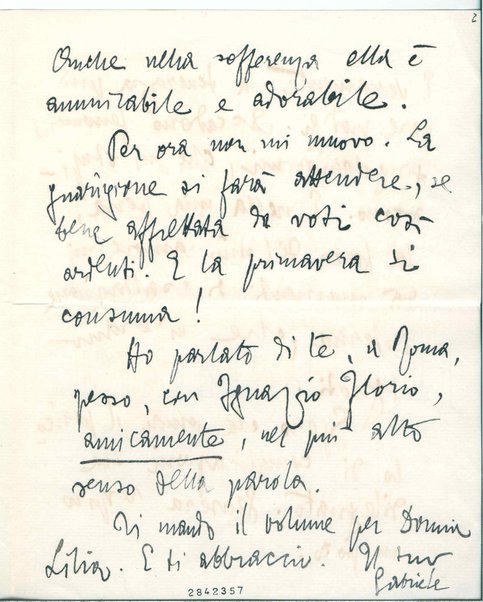 2
Anche nella sofferenza ella è
ammirabile e adorabile.
Per ora non mi muovo. La
guarigione si farà attendere, se
bene affrettata da voti così
ardenti. E la primavera si
consuma!
Ho parlato di te, a Roma,
spesso, con Ignazio Florio,
amicamente, nel più alto
senso della parola.
Ti mando il volume per Donna
Lilia. E ti abbraccio. Il tuo
Gabriele
2842357